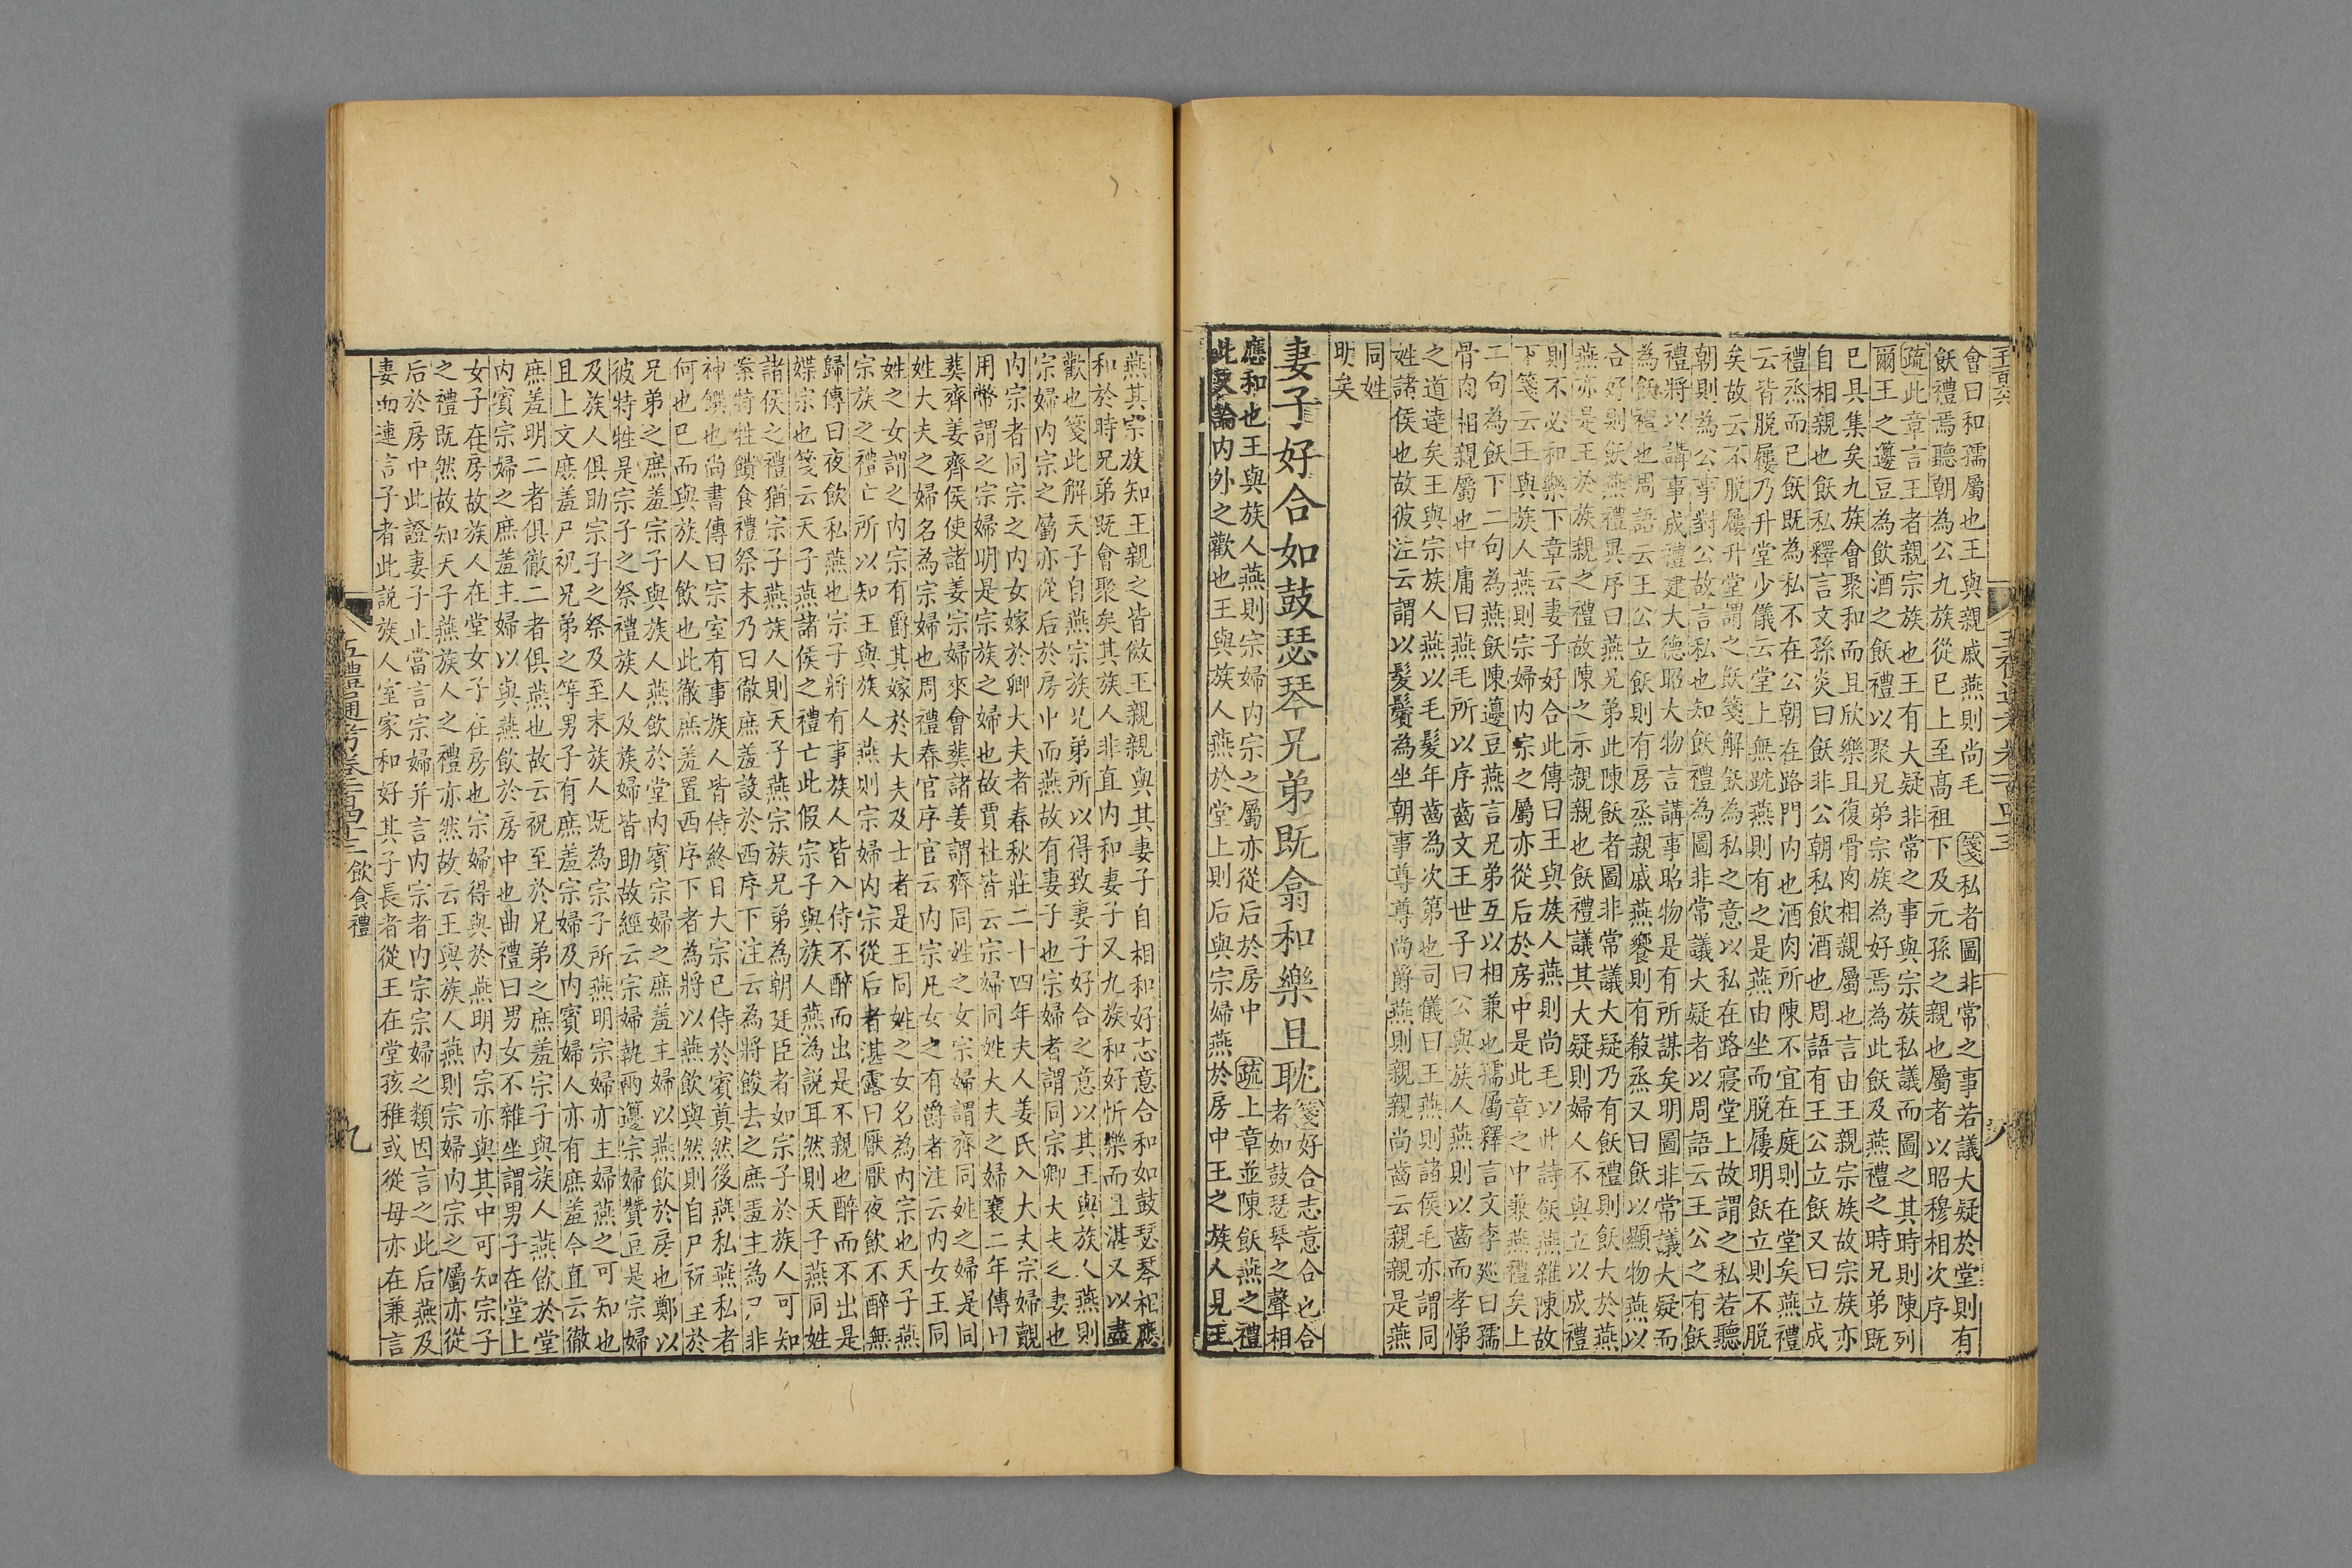 會曰和孺屬也王與親戚燕則尚毛 箋私者圖非常之事若議大疑於堂則有
飫禮焉聽朝為公九族從已上至高祖下及元孫之親也屬者以昭穆相次序
疏此章言王者親宗族也王有大疑非常之事與宗族私議而圖之其時則陳列
爾王之籩豆為飲酒之飫禮以聚兄弟宗族為好焉為此飫及燕禮之時兄弟既
已具集矣九族會聚和而且欣樂且復骨肉相親屬也言由王親宗族故宗族亦
自相親也飫私釋言文孫炎曰飫非公朝私飲酒也周語有王公立飫又曰立成
禮烝而已飫既為私不在公朝在路門內也酒肉所陳不宜在庭則在堂矣燕禮
云皆脫屨乃升堂少儀云堂上無跣燕則有之是燕由坐而脫屨明飫立則不脫
矣故云不脫屨升堂謂之飫箋解飫為私之意以私在路寢堂上故謂之私若聽
朝則為公事對公故言私也知飫禮為圖非常議大疑者以周語云王公之有飫
禮將以講事成禮建大德昭大物言講事昭物是有所謀矣明圖非常議大疑而
為飫禮也周語云王公立飫則有房烝親戚燕饗則有殽烝又曰飫以顯物燕以
合好則飫燕禮異序曰燕兄弟此陳飫者圖非常議大疑乃有飫禮則飫大於燕
燕亦是王於族親之禮故陳之示親親也飫禮議其大疑則婦人不與立以成禮
則不必和樂下章云妻子好合此傳曰王與族人燕則尚毛以此詩飫燕雜陳故
下箋云王與族人燕則宗婦內宗之屬亦從后於房中是此章之中兼燕禮矣上
二句為飫下二句為燕飫陳籩豆燕言兄弟互以相兼也孺屬釋言文李廵曰孺
骨肉相親屬也中庸曰燕毛所以序齒文王世子曰公與族人燕則以齒而孝悌
之道達矣王與宗族人燕以毛髮年齒為次第也司儀曰王燕則諸侯毛亦謂同
姓諸侯也故彼注云謂以髮鬢為坐朝事尊尊尚爵燕則親親尚齒云親親是燕
同姓
明矣
妻子好合如鼓瑟琴兄弟既翕和樂且耽
箋好合志意合也合
者如鼓瑟琴之聲相
應和也王與族人燕則宗婦內宗之屬亦從后於房中 疏上章並陳飫燕之禮
此又論內外之歡也王與族人燕於堂上則后與宗婦燕於房中王之族人見王
燕其宗族知王親之皆傚王親親與其妻子自相和好志意合和如鼓瑟琴相應
和於時兄弟既會聚矣其族人非直內和妻子又九族和好忻樂而且湛又以盡
歡也箋此解天子自燕宗族兄弟所以得致妻子好合之意以其王與族人燕則
宗婦內宗之屬亦從后於房中而燕故有妻子也宗婦者謂同宗卿大夫之妻也
內宗者同宗之內女嫁於卿大夫者春秋莊二十四年夫人姜氏入大夫宗婦覿
用幣謂之宗婦明是宗族之婦也故賈杜皆云宗婦同姓大夫之婦襄二年傳曰
葬齊姜齊侯使諸姜宗婦來會葬諸姜謂齊同姓之女宗婦謂齊同姓之婦是同
姓大夫之婦名為宗婦也周禮春官序官云內宗凡女之有爵者注云內女王同
姓之女謂之內宗有爵其嫁於大夫及士者是王同姓之女名為內宗也天子燕
宗族之禮亡所以知王與族人燕則宗婦內宗從后者湛露曰厭厭夜飲不醉無
歸傳曰夜飲私燕也宗子將有事族人皆入侍不醉而出是不親也醉而不出是
媟宗也箋云天子燕諸侯之禮亡此假宗子與族人燕為說耳然則天子燕同姓
諸侯之禮猶宗子燕族人則天子燕宗族兄弟為朝廷臣者如宗子於族人可知
案特牲饋食禮祭末乃曰徹庶羞設於西序下注云為將餕去之庶羞主為尸非
神饌也尚書傳曰宗室有事族人皆侍終日大宗已侍於賓奠然後燕私燕私者
何也已而與族人飲也此徹庶羞置西序下者為將以燕飲與然則自尸祝至於
兄弟之庶羞宗子與族人燕飲於堂內賓宗婦之庶羞主婦以燕飲於房也鄭以
彼特牲是宗子之祭禮族人及族婦皆助故經云宗婦執兩籩宗婦贊豆是宗婦
及族人俱助宗子之祭及至末族人既為宗子所燕明宗婦亦主婦燕之可知也
且上文庶羞尸祝兄弟之等男子有庶羞宗婦及內賓婦人亦有庶羞今直云徹
庶羞明二者俱徹二者俱燕也故云祝至於兄弟之庶羞宗子與族人燕飲於堂
內賓宗婦之庶羞主婦以與燕飲於房中也曲禮曰男女不雜坐謂男子在堂上
女子在房故族人在堂女子在房也宗婦得與於燕明內宗亦與其中可知宗子
之禮既然故知天子燕族人之禮亦然故云王與族人燕則宗婦內宗之屬亦從
后於房中此證妻子止當言宗婦并言內宗者內宗宗婦之類因言之此后燕及
妻而連言子者此說族人室家和好其子長者從王在堂孩稚或從母亦在兼言
五禮通考卷一百四十三
飲食禮
九